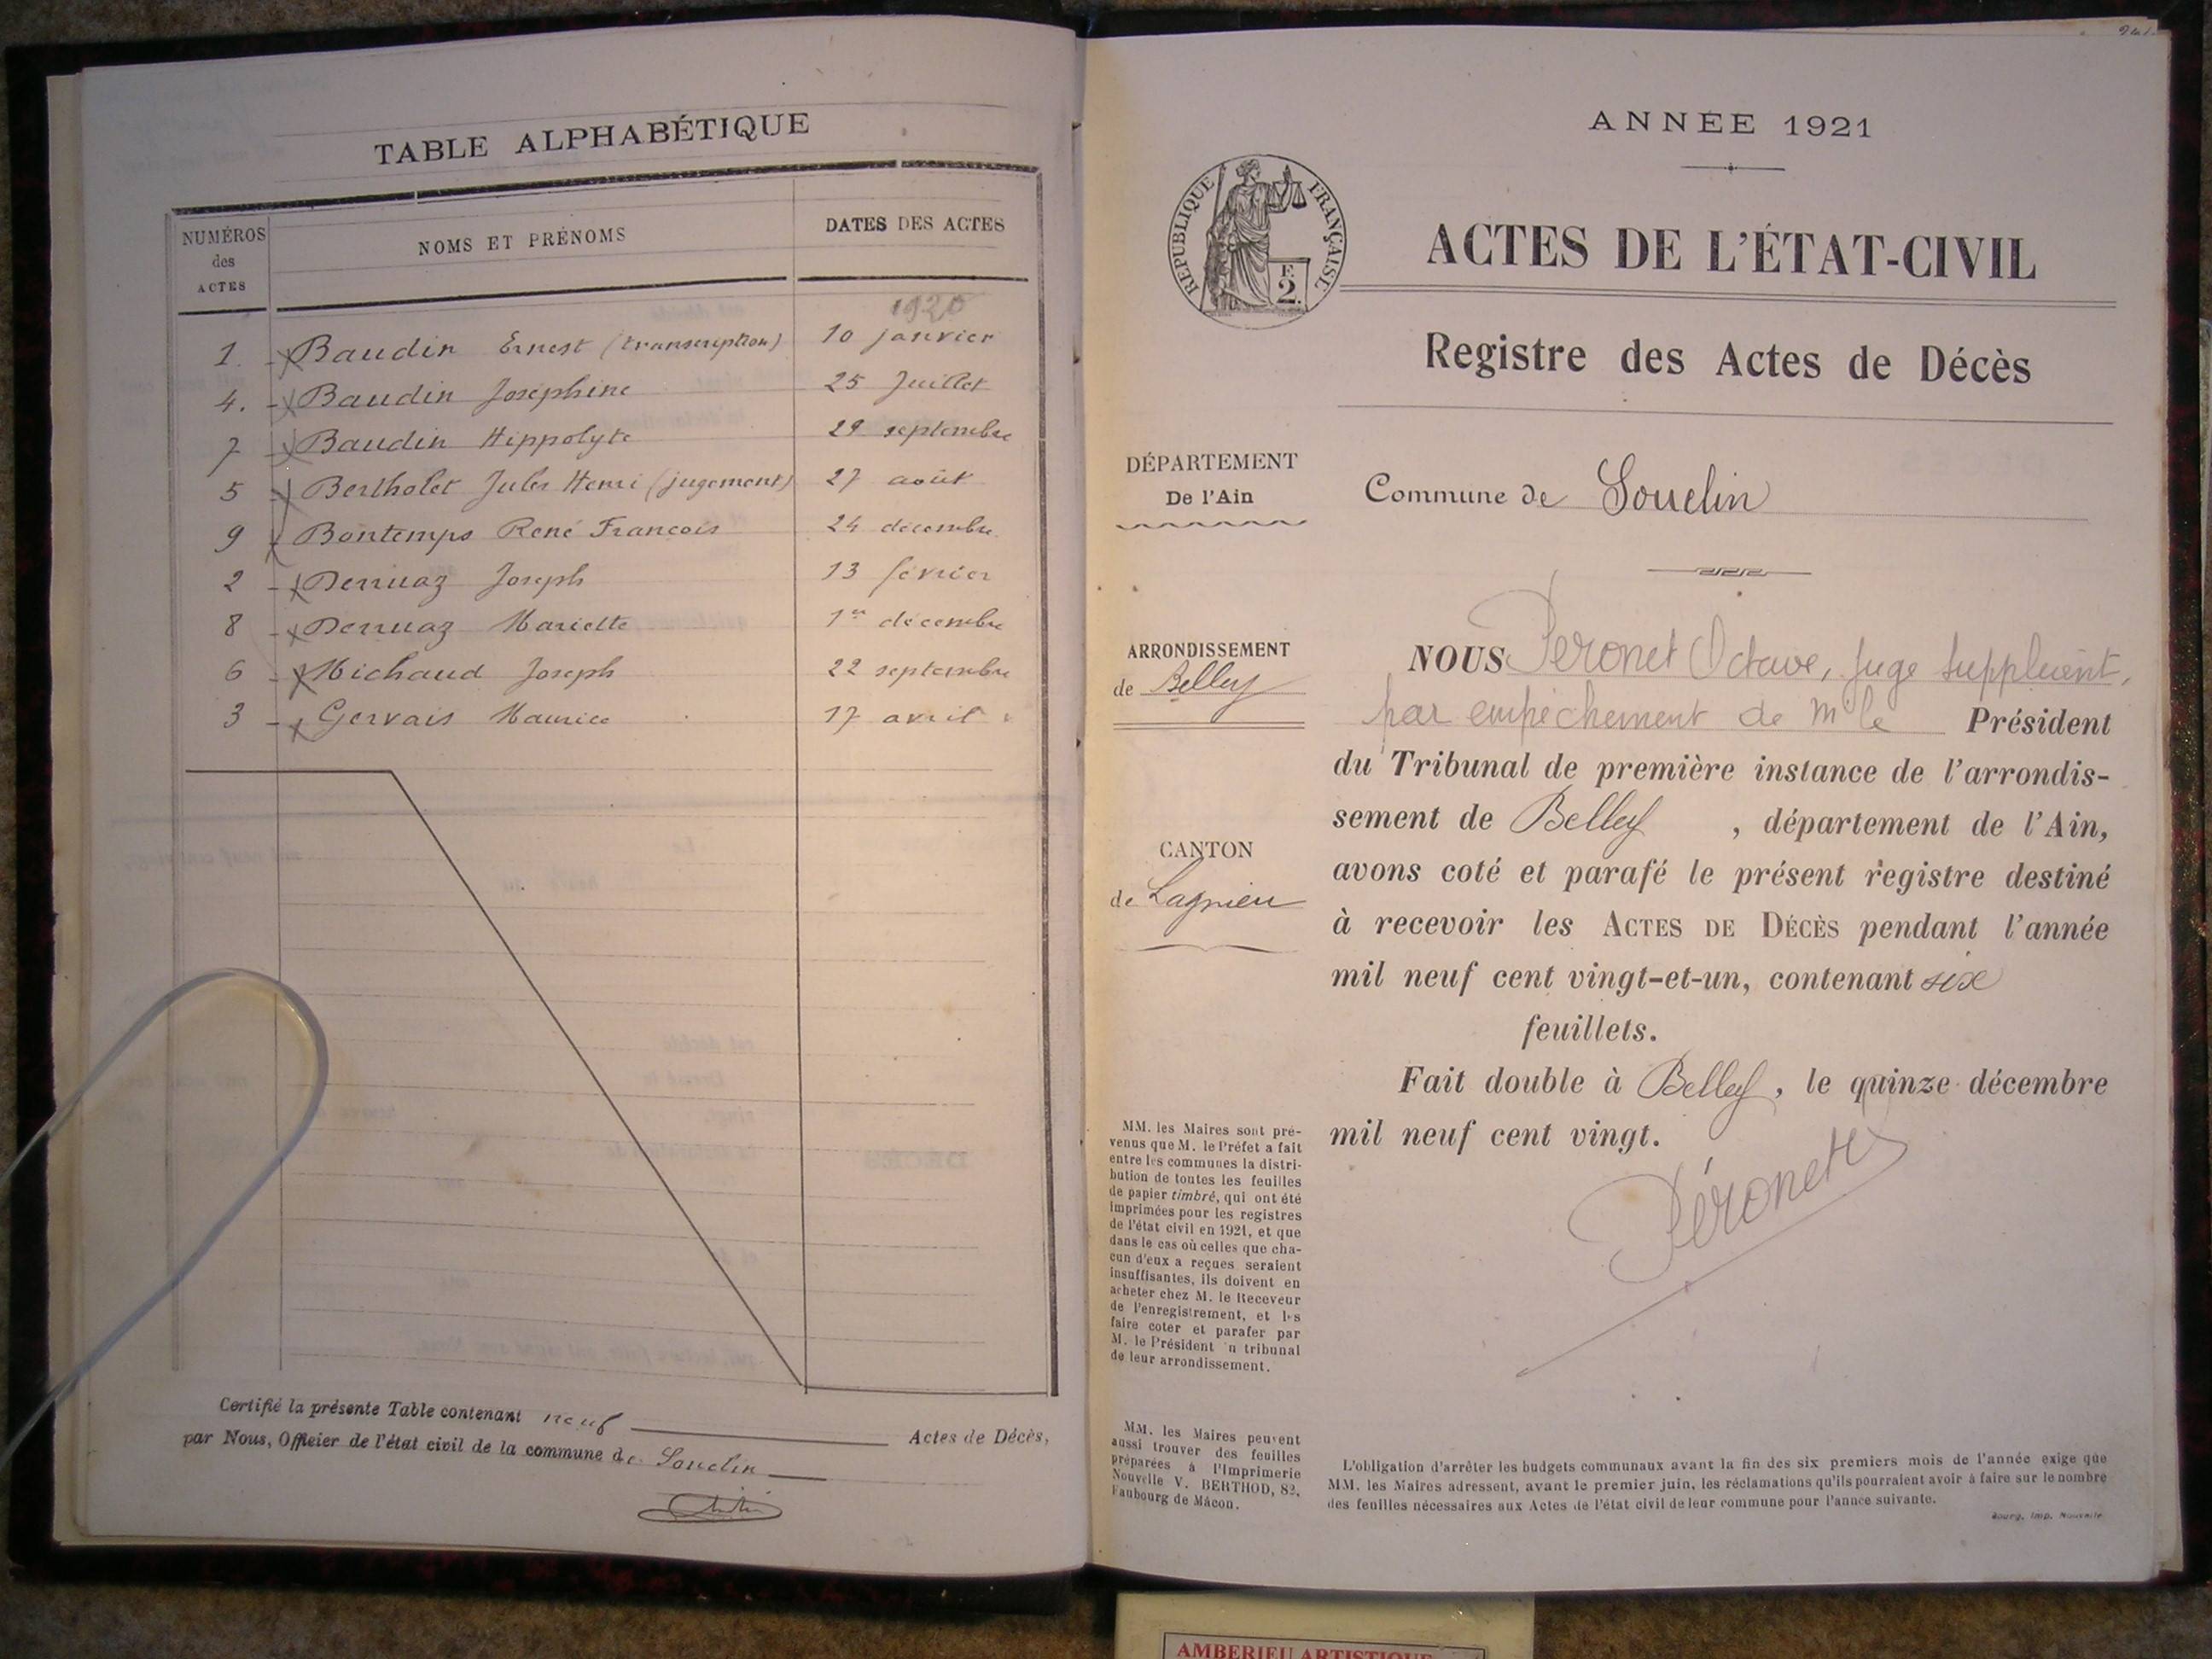 TABLE ALPHABÉTIQUE
NUMÉROS des ACTES
NOMS ET PRÉNOMS
DATES DES ACTES
1920
1. Baudin Ernest (transcription) 10 janvier
4. Baudin Joséphine 25 Juillet
7 Baudin Hippolyte 29 septembre
5 Bertholet Jules Henri (jugement) 27 août
9 Bontemps René François 24 décembre
2 Derruaz Joseph 13 février
8 Derruaz Mariette 1er décembre
6 Michaud Joseph 22 septembre
3 Gervais Maurice 17 avril
Certifié la présente Table contenant neuf Actes de Décès,
par Nous, Officier de l'état civil de la commune de Souclin
ANNÉE 1921
RÉPUBLIQUE FRANÇAISE
F.
2.
ACTES DE L'ÉTAT-CIVIL
Registre des Actes de Décès
DÉPARTEMENT
De l'Ain
Commune de Souclin
ARRONDISSEMENT
de Belley
CANTON
de Lagnieu
NOUS Péronet Octave, juge suppléant,
par empêchement de Mr le Président
du Tribunal de première instance de l'arrondis-
sement de Belley, département de l'Ain,
avons coté et parafé le présent registre destiné
à recevoir les ACTES DE DÉCÈS pendant l'année
mil neuf cent vingt-et-un, contenant six
feuillets.
Fait double à Belley, le quinze décembre
mil neuf cent vingt.
Péronet
MM. les Maires sont pré-
venus que M. le Préfet a fait
entre les communes la distri-
bution de toutes les feuilles
de papier timbré, qui ont été
imprimées pour les registres
de l'état civil en 1921, et que
dans le cas où celles que cha-
cun d'eux a reçues seraient
insuffisantes, ils doivent en
acheter chez M. le Receveur
de l'enregistrement, et les
faire coter et parafer par
M. le Président n tribunal
de leur arrondissement.
MM. les Maires peuvent
aussi trouver des feuilles
préparées à l'Imprimerie
Nouvelle V. BERTHOD, 82,
Faubourg de Mâcon.
L'obligation d'arrêter les budgets communaux avant la fin des six premiers mois de l'année exige que
MM. les Maires adressent, avant le premier juin, les réclamations qu'ils pourraient avoir à faire sur le nombre
des feuilles nécessaires aux Actes de l'état civil de leur commune pour l'année suivante.
Bourg, Imp. Nouvelle
AMBERIEU ARTISTIQUE